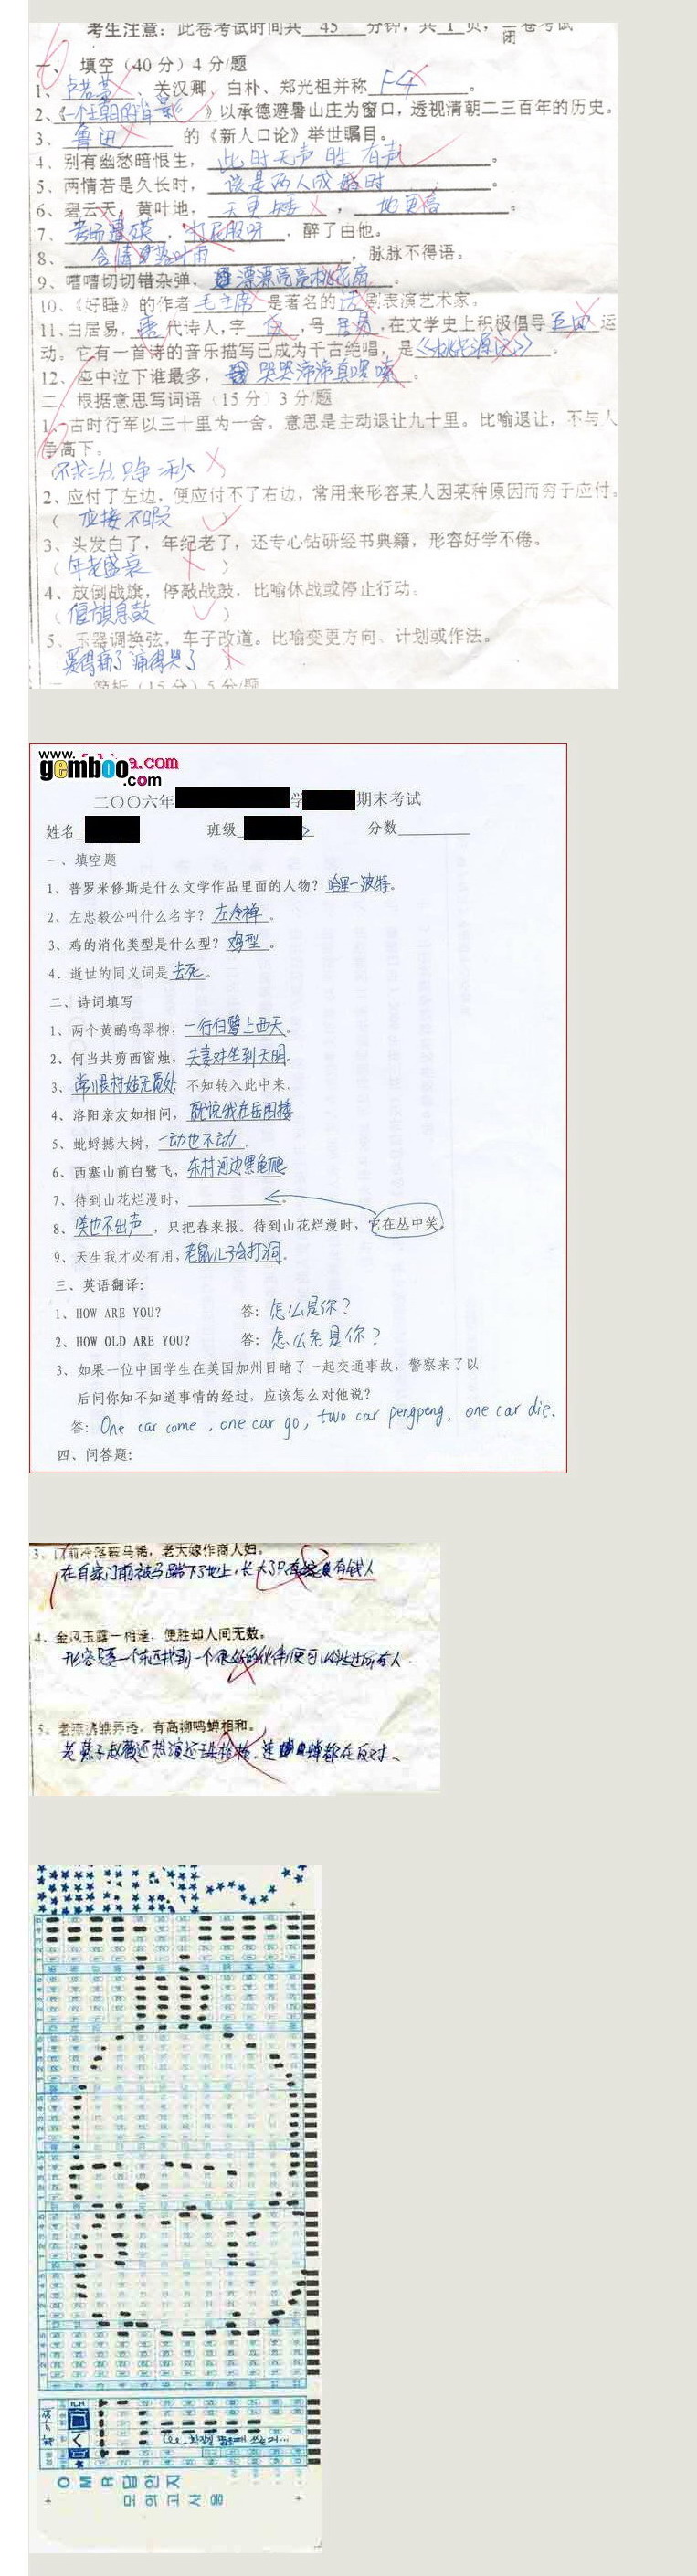 考生注意：此卷考试时间共 45 分钟，共 1 页，闭卷考试
一、填空（40分）4分/题
1、卢若萱、关汉卿、白朴、郑光祖并称F4。
2、《一个王朝的背影》以承德避暑山庄为窗口，透视清朝二三百年的历史。
3、鲁迅 的《新人口论》举世瞩目。
4、别有幽愁暗恨生，此时无声胜有声。
5、两情若是久长时，该是两人成婚时。
6、碧云天，黄叶地，天更矮，地更高。
7、考师遭殃，打屁股呀，醉了白他。
8、含情 叶雨，脉脉不得语。
9、嘈嘈切切错杂弹，漂漂亮亮桃花扇。
10、《好睡》的作者毛主席是著名的话剧表演艺术家。
11、白居易，唐代诗人，字 白，号 居易，在文学史上积极倡导五四运
动。它有一首诗的音乐描写已成为千古绝唱，是《桃花源记》。
12、座中泣下谁最多，哭哭啼啼真啰嗦。
二、根据意思写词语（15分）3分/题
1、古时行军以三十里为一舍。意思是主动退让九十里。比喻退让，不与人
争高下。
（不求三分，只争一秒
2、应付了左边，便应付不了右边，常用来形容某人因某种原因而穷于应付。
（应接不暇）
3、头发白了，年纪老了，还专心钻研经书典籍，形容好学不倦。
（年老盛衰）
4、放倒战旗，停敲战鼓，比喻休战或停止行动。
（偃旗息鼓）
5、乐器调换弦，车子改道。比喻变更方向、计划或作法。
累得病了 痛得哭了
简析（15分）5分/题
www.
gemboo.com
.com
二〇〇六年 学 期末考试
姓名 班级 分数
一、填空题
1、普罗米修斯是什么文学作品里面的人物？哈里-波特。
2、左忠毅公叫什么名字？左冷禅。
3、鸡的消化类型是什么型？鸡型。
4、逝世的同义词是去死。
二、诗词填写
1、两个黄鹂鸣翠柳，一行白鹭上西天。
2、何当共剪西窗烛，夫妻对坐到天明。
3、常恨村姑无觅处 不知转入此中来。
4、洛阳亲友如相问，就说我在岳阳楼
5、蚍蜉撼大树，一动也不动。
6、西塞山前白鹭飞，东村河边黑龟爬
7、待到山花烂漫时，。
8、哭也不出声，只把春来报。待到山花烂漫时，它在丛中笑。
9、天生我才必有用，老鼠儿子会打洞。
三、英语翻译：
1、HOW ARE YOU? 答：怎么是你？
2、HOW OLD ARE YOU? 答：怎么老是你？
3、如果一位中国学生在美国加州目睹了一起交通事故，警察来了以
后问你知不知道事情的经过，应该怎么对他说？
答：One car come, one car go, two car pengpeng, one car die.
四、问答题：
3、门前冷落鞍马稀，老大嫁作商人妇。
在自家门前被马踏下了地上，长大了只有 有钱人
4、金风玉露一相逢，便胜却人间无数。
形容 一个东西找到一个很好的伙伴便可以胜过所有人
5、老燕携雏弄语，有高柳鸣蝉相和。
老燕子赵薇还想演还珠格格，连 蝉都在反对、
OMR답안지
모의고사용